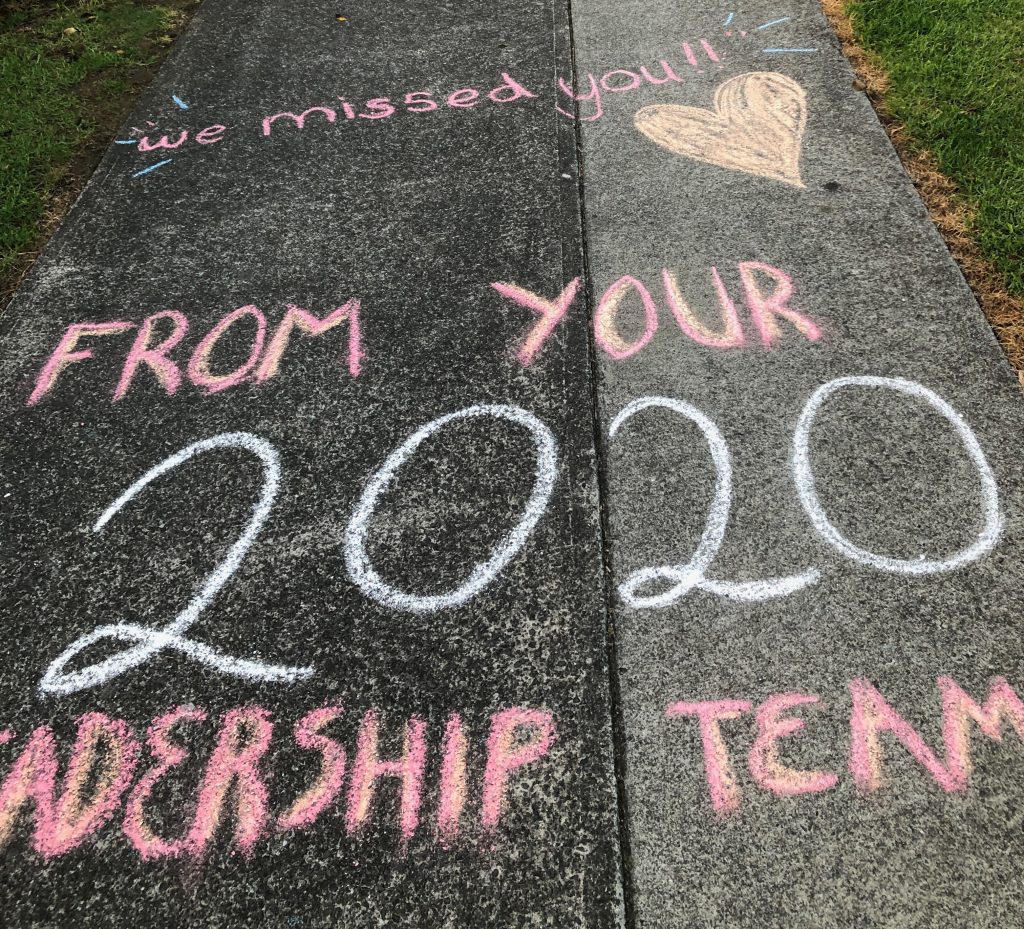 we missed you!!
FROM YOUR
2020
ADERSHIP TEAM